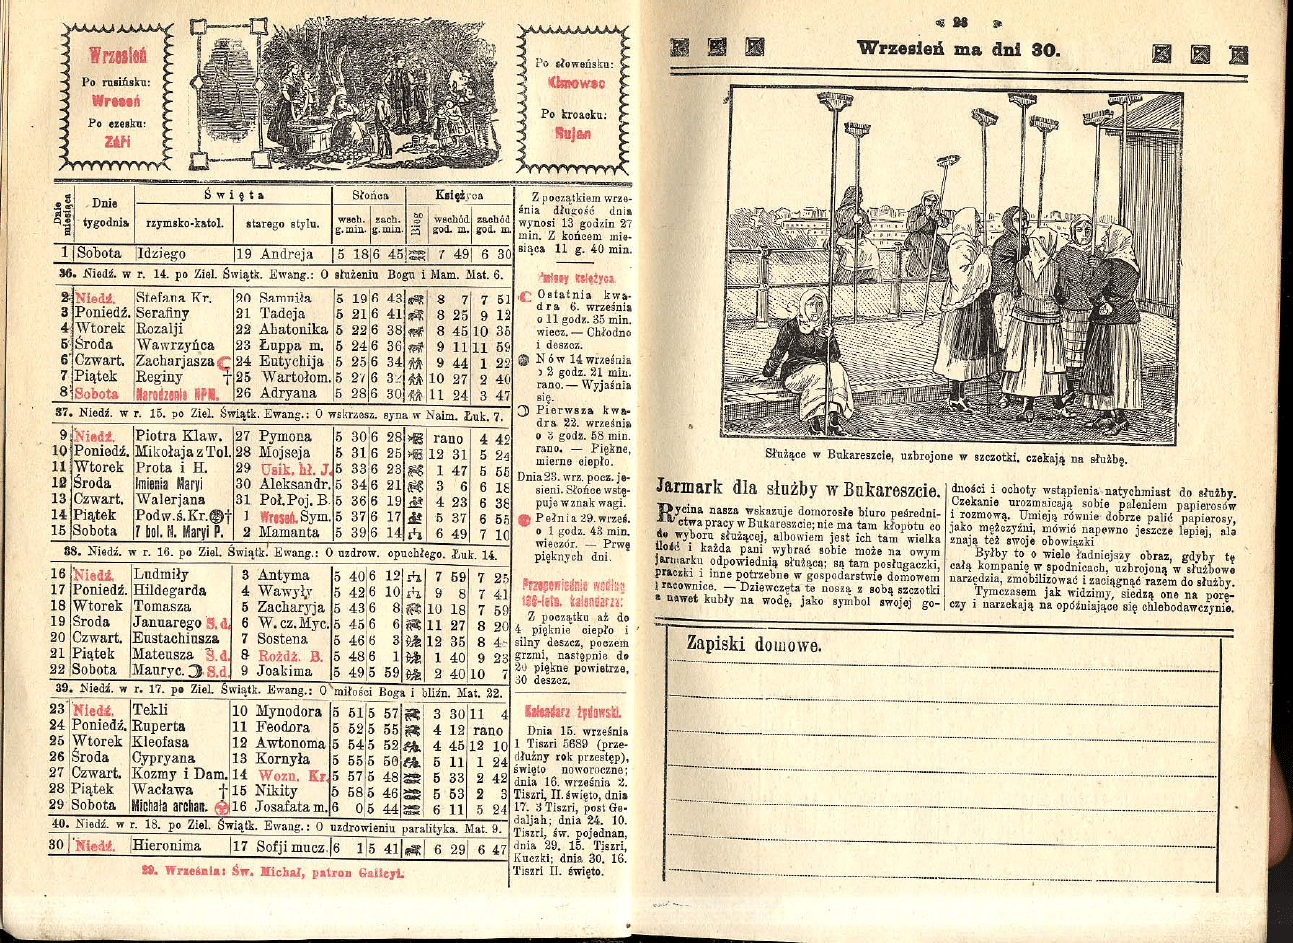 Wrzesień
Po rusińsku:
Wreseń
Po czesku:
Září
Po słoweńsku:
Kimowec
Po kroacku:
Rujan
Dnie miesiąca
Dnie tygodnia
Święta
rzymsko-katol.
starego stylu.
Słońca
wsch. g. min.
zach. g. min.
Bieg
Księżyca
wschód god. m.
zachód god. m.
1 Sobota Idziego 19 Andreja 5 18 6 45 7 49 6 30
36. Niedź. w r. 14. po Ziel. Świątk. Ewang.: O służeniu Bogu i Mam. Mat. 6.
2 Niedź. Stefana Kr. 20 Samuiła 5 19 6 43 8 7 7 51
3 Poniedź. Serafiny 21 Tadeja 5 21 6 41 8 25 9 12
4 Wtorek Rozalji 22 Ahatonika 5 22 6 38 8 45 10 35
5 Środa Wawrzyńca 23 Łuppa m. 5 24 6 36 9 11 11 59
6 Czwart. Zacharjasza 24 Eutychija 5 25 6 34 9 44 1 22
7 Piątek Reginy † 25 Wartołom. 5 27 6 10 27 2 40
8 Sobota Narodzenie NPM. 26 Adryana 5 28 6 30 11 24 3 47
37. Niedź. w r. 15. po Ziel. Świątk. Ewang.: O wskrzesz. syna w Naim. Łuk. 7.
9 Niedź. Piotra Klaw. 27 Pymona 5 30 6 28 rano 4 42
10 Poniedź. Mikołaja z Tol. 28 Mojseja 5 31 6 25 12 31 5 24
11 Wtorek Prota i H. 29 Usik. hł. J. 5 33 6 23 1 47 5 55
12 Środa Imienia Maryi 30 Aleksandr. 5 34 6 21 3 6 6 18
13 Czwart. Walerjana 31 Poł. Poj. B. 5 36 6 19 4 23 6 38
14 Piątek Podw. ś. Kr. † 1 Wreseń. Sym. 5 37 6 17 5 37 6 55
15 Sobota 7 bol. N. Maryi P. 2 Mamanta 5 39 6 14 6 49 7 10
38. Niedź. w r. 16. po Ziel. Świątk. Ewang.: O uzdrow. opuchłego. Łuk. 14.
16 Niedź. Ludmiły 3 Antyma 5 40 6 12 7 59 7 25
17 Poniedź. Hildegarda 4 Wawyły 5 42 6 10 9 8 7 41
18 Wtorek Tomasza 5 Zacharyja 5 43 6 8 10 18 7 59
19 Środa Januarego S.d. 6 W. cz. Myc. 5 45 6 6 11 27 8 20
20 Czwart. Eustachiusza 7 Sostena 5 46 6 3 12 35 8
21 Piątek Mateusza S.d. 8 Rożdź. B. 5 48 6 1 1 40 9 23
22 Sobota Mauryc. S.d. 9 Joakima 5 49 5 59 2 40 10 7
39. Niedź. w r. 17. po Ziel. Świątk. Ewang.: O miłości Boga i bliźn. Mat. 22.
23 Niedź. Tekli 10 Mynodora 5 51 5 57 3 30 11 4
24 Poniedź. Ruperta 11 Feodora 5 52 5 55 4 12 rano
25 Wtorek Kleofasa 12 Awtonoma 5 54 5 52 4 45 12 10
26 Środa Cypryana 13 Kornyła 5 55 5 50 5 11 1 24
27 Czwart. Kozmy i Dam. 14 Wozn. Kr. 5 57 5 48 5 33 2 42
28 Piątek Wacława † 15 Nikity 5 58 5 46 5 53 2 3
29 Sobota Michała archan. 16 Josafata m. 6 0 5 44 6 11 5 24
40. Niedź. w r. 18. po Ziel. Świątk. Ewang.: O uzdrowieniu paralityka. Mat. 9.
30 Niedź. Hieronima 17 Sofji mucz. 6 1 5 41 6 29 6 47
29. Września: Św. Michał, patron Galicyi.
Z początkiem wrze-
śnia długość dnia
wynosi 13 godzin 27
min. Z końcem mie-
siąca 11 g. 40 min.
Zmiany księżyca.
Ostatnia kwa-
dra 6. września
o 11 godz. 35 min.
wiecz. — Chłodno
i deszcz.
Nów 14 września
o 2 godz. 21 min.
rano. — Wyjaśnia
się.
Pierwsza kwa-
dra 22. września
o 3 godz. 58 min.
rano. — Piękne,
mierne ciepło.
Dnia 23. wrz. pocz. je-
sieni. Słońce wstę-
puje w znak wagi.
Pełnia 29. wrześ.
o 1 godz. 43 min.
wieczór. — Prwę
pięknych dni.
Przepowiednie według
100-letn. kalendarza:
Z początku aż do
4 pięknie ciepło i
silny deszcz, poczem
grzmi, następnie do
20 piękne powietrze,
30 deszcz.
Kalendarz żydowski.
Dnia 15. września
1 Tiszri 5689 (prze-
dłużny rok przestęp),
święto noworoczne;
dnia 16. września 2.
Tiszri, II. święto, dnia
17. 3 Tiszri, post Ge-
daljah; dnia 24. 10.
Tiszri, św. pojednan,
dnia 29. 15. Tiszri,
Kuczki; dnia 30. 16.
Tiszri II. święto.
Wrzesień ma dni 30.
Służące w Bukareszcie, uzbrojone w szczotki, czekają na służbę.
Jarmark dla służby w Bukareszcie.
Rycina nasza wskazuje domorosłe biuro pośredni-
ctwa pracy w Bukareszcie; nie ma tam kłopotu co
do wyboru służącej, albowiem jest ich tam wielka
ilość i każda pani wybrać sobie może na owym
jarmarku odpowiednią służącą; są tam posługaczki,
praczki i inne potrzebne w gospodarstwie domowem
pracownice. — Dziewczęta te noszą z sobą szczotki
a nawet kubły na wodę, jako symbol swojej go-
dności i ochoty wstąpienia natychmiast do służby.
Czekanie urozmaicają sobie paleniem papierosów
i rozmową. Umieją równie dobrze palić papierosy,
jako mężczyźni, mówić napewno jeszcze lepiej, ale
znają też swoje obowiązki
Byłby to o wiele ładniejszy obraz, gdyby tę
całą kompanię w spodnicach, uzbrojoną w służbowe
narzędzia, zmobilizować i zaciągnąć razem do służby.
Tymczasem jak widzimy, siedzą one na porę-
czy i narzekają na opóźniające się chlebodawczynie.
Zapiski domowe.